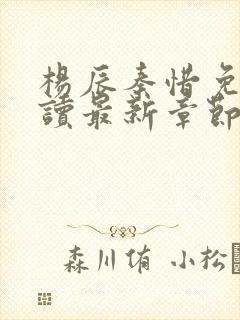 楊辰秦惜免
讀最新章節
森川侑 小松